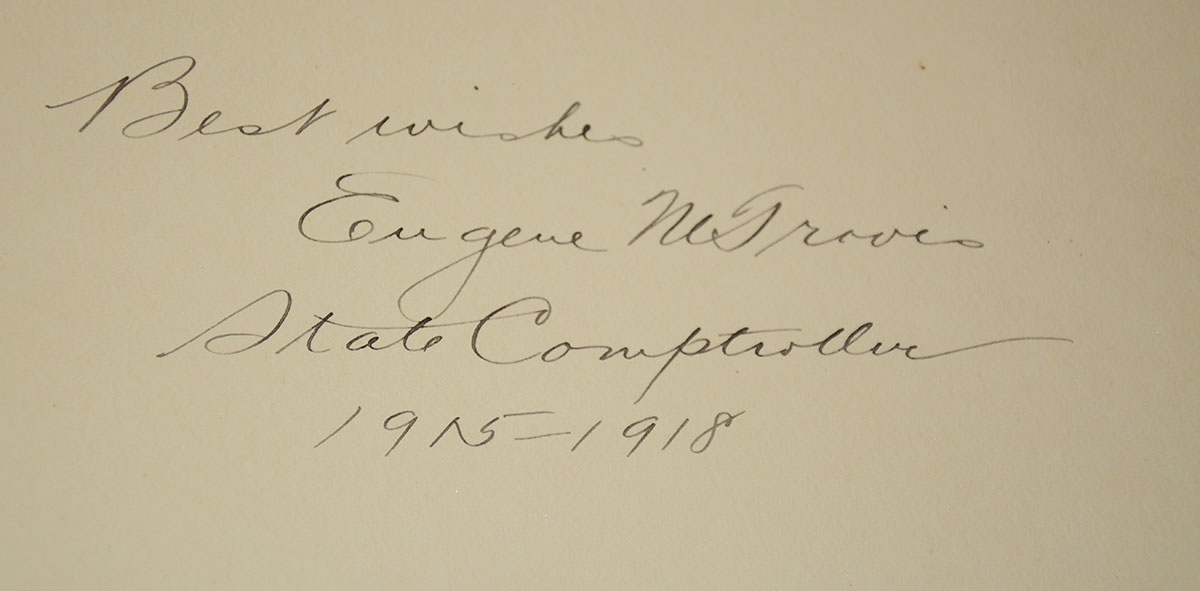 Best wishes
Eugene M Travis
State Comptroller
1915-1918